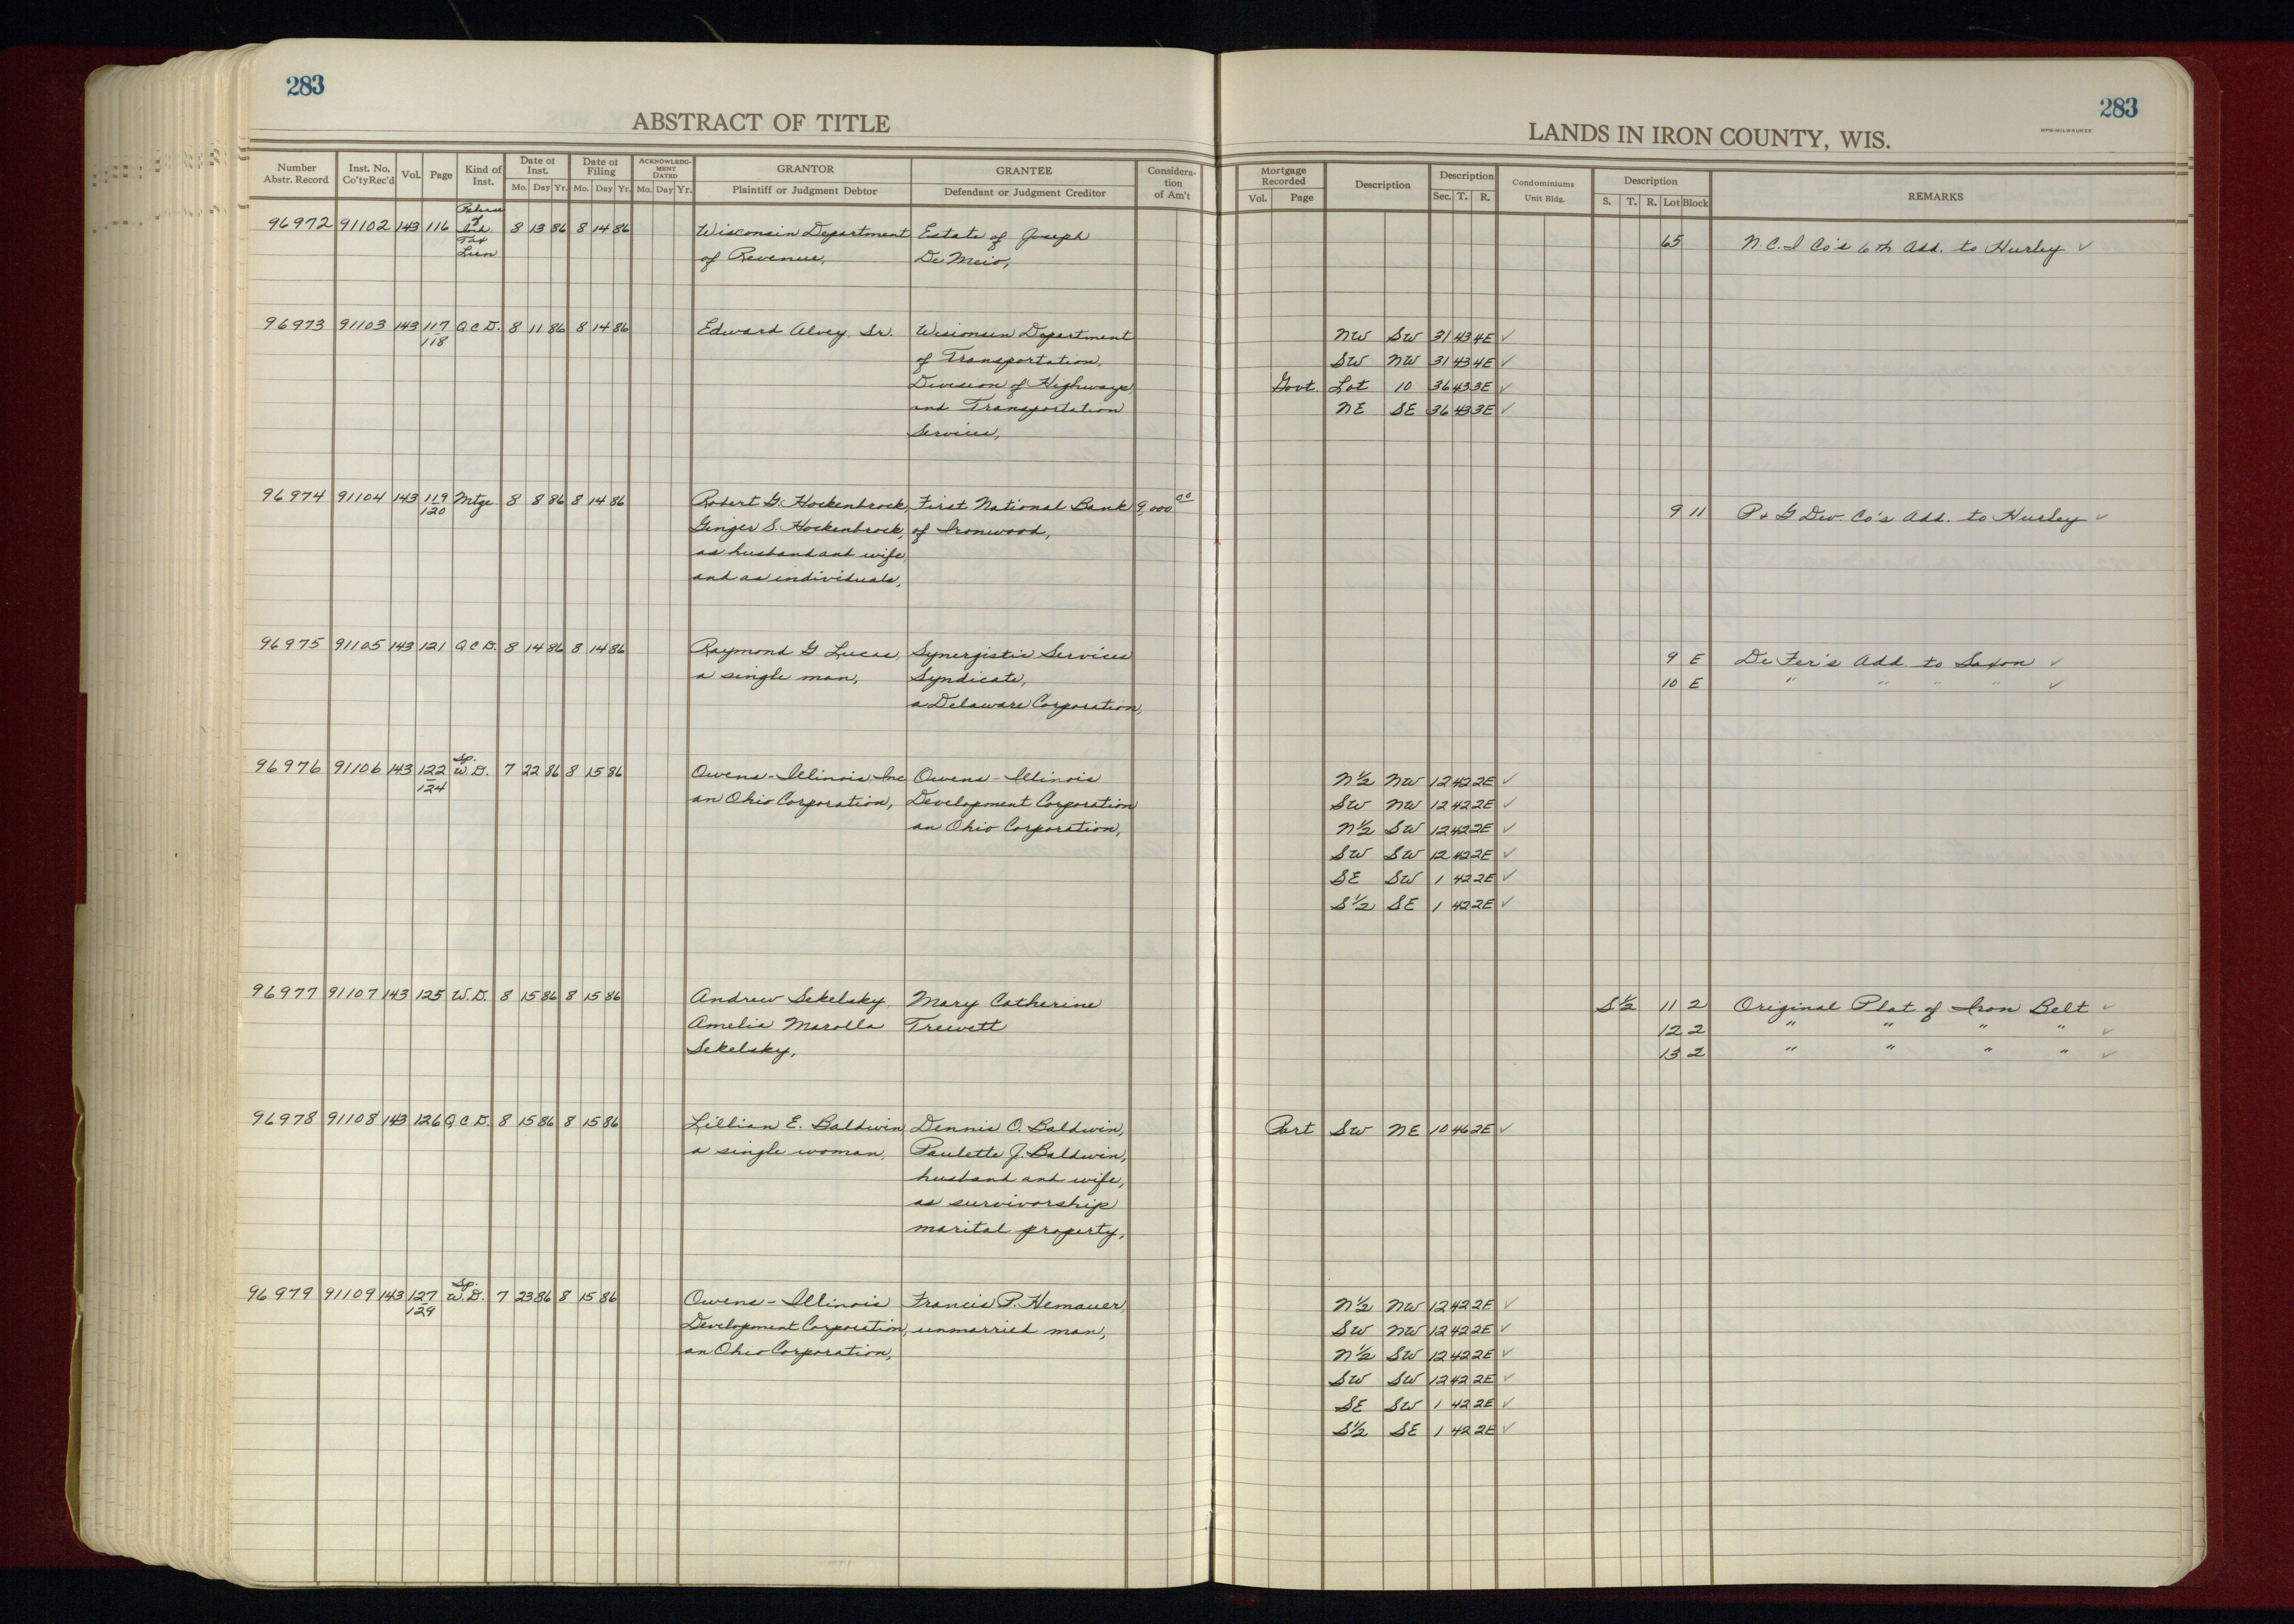 283
ABSTRACT OF TITLE
Number Abstr. Record | Inst. No. Co'ty Rec'd | Vol. | Page | Kind of Inst. | Date of Inst. Mo. Day Yr. | Date of Filing Mo. Day Yr. | ACKNOWLEDGMENT DATED Mo. Day Yr. | GRANTOR Plaintiff or Judgment Debtor | GRANTEE Defendant or Judgment Creditor | Consideration of Am't
96972 91102 143 116 Release of Tax Lien 8 13 86 8 14 86 Wisconsin Department Estate of Joseph
of Revenue, De Meio,
96973 91103 143 117 Q C D. 8 11 86 8 14 86 Edward Alvey, Sr. Wisconsin Department
118 of Transportation,
Division of Highways
and Transportation
Services,
96974 91104 143 119 Mtge 8 8 86 8 14 86 Robert G. Hockenbrock, First National Bank 9,000 00
120 Ginger S. Hockenbrock, of Ironwood,
as husband and wife,
and as individuals,
96975 91105 143 121 Q C D. 8 14 86 8 14 86 Raymond G Lucas, Synergistic Services
a single man, Syndicate,
a Delaware Corporation,
96976 91106 143 122 Sp. W. D. 7 22 86 8 15 86 Owens-Illinois, Inc Owens-Illinois
124 an Ohio Corporation, Development Corporation
an Ohio Corporation,
96977 91107 143 125 W. D. 8 15 86 8 15 86 Andrew Sekelsky, Mary Catherine
Amelia Marolla Trewett
Sekelsky,
96978 91108 143 126 Q C D. 8 15 86 8 15 86 Lillian E. Baldwin, Dennis O. Baldwin,
a single woman, Paulette J. Baldwin,
husband and wife,
as survivorship
marital property,
96979 91109 143 127 Sp. W. D. 7 23 86 8 15 86 Owens-Illinois Francis P. Hemauer,
129 Development Corporation, unmarried man,
an Ohio Corporation,
283
LANDS IN IRON COUNTY, WIS.
MPB-MILWAUKEE
Mortgage Recorded Vol. Page | Description | Description Sec. T. R. | Condominiums Unit Bldg. | Description S. T. R. Lot Block | REMARKS
65 N. C. I Co's 6th Add. to Hurley ✓
NW SW 31 43 4E ✓
SW NW 31 43 4E ✓
Govt. Lot 10 36 43 3E ✓
NE SE 36 43 3E ✓
9 11 P + G Dev. Co's Add. to Hurley ✓
9 E De Fer's Add to Saxon ✓
10 E " " " " ✓
N½ NW 12 42 2E ✓
SW NW 12 42 2E ✓
N½ SW 12 42 2E ✓
SW SW 12 42 2E ✓
SE SW 1 42 2E ✓
S½ SE 1 42 2E ✓
S½ 11 2 Original Plat of Iron Belt ✓
12 2 " " " " ✓
13 2 " " " " ✓
Part SW NE 10 46 2E ✓
N½ NW 12 42 2E ✓
SW NW 12 42 2E ✓
N½ SW 12 42 2E ✓
SW SW 12 42 2E ✓
SE SW 1 42 2E ✓
S½ SE 1 42 2E ✓